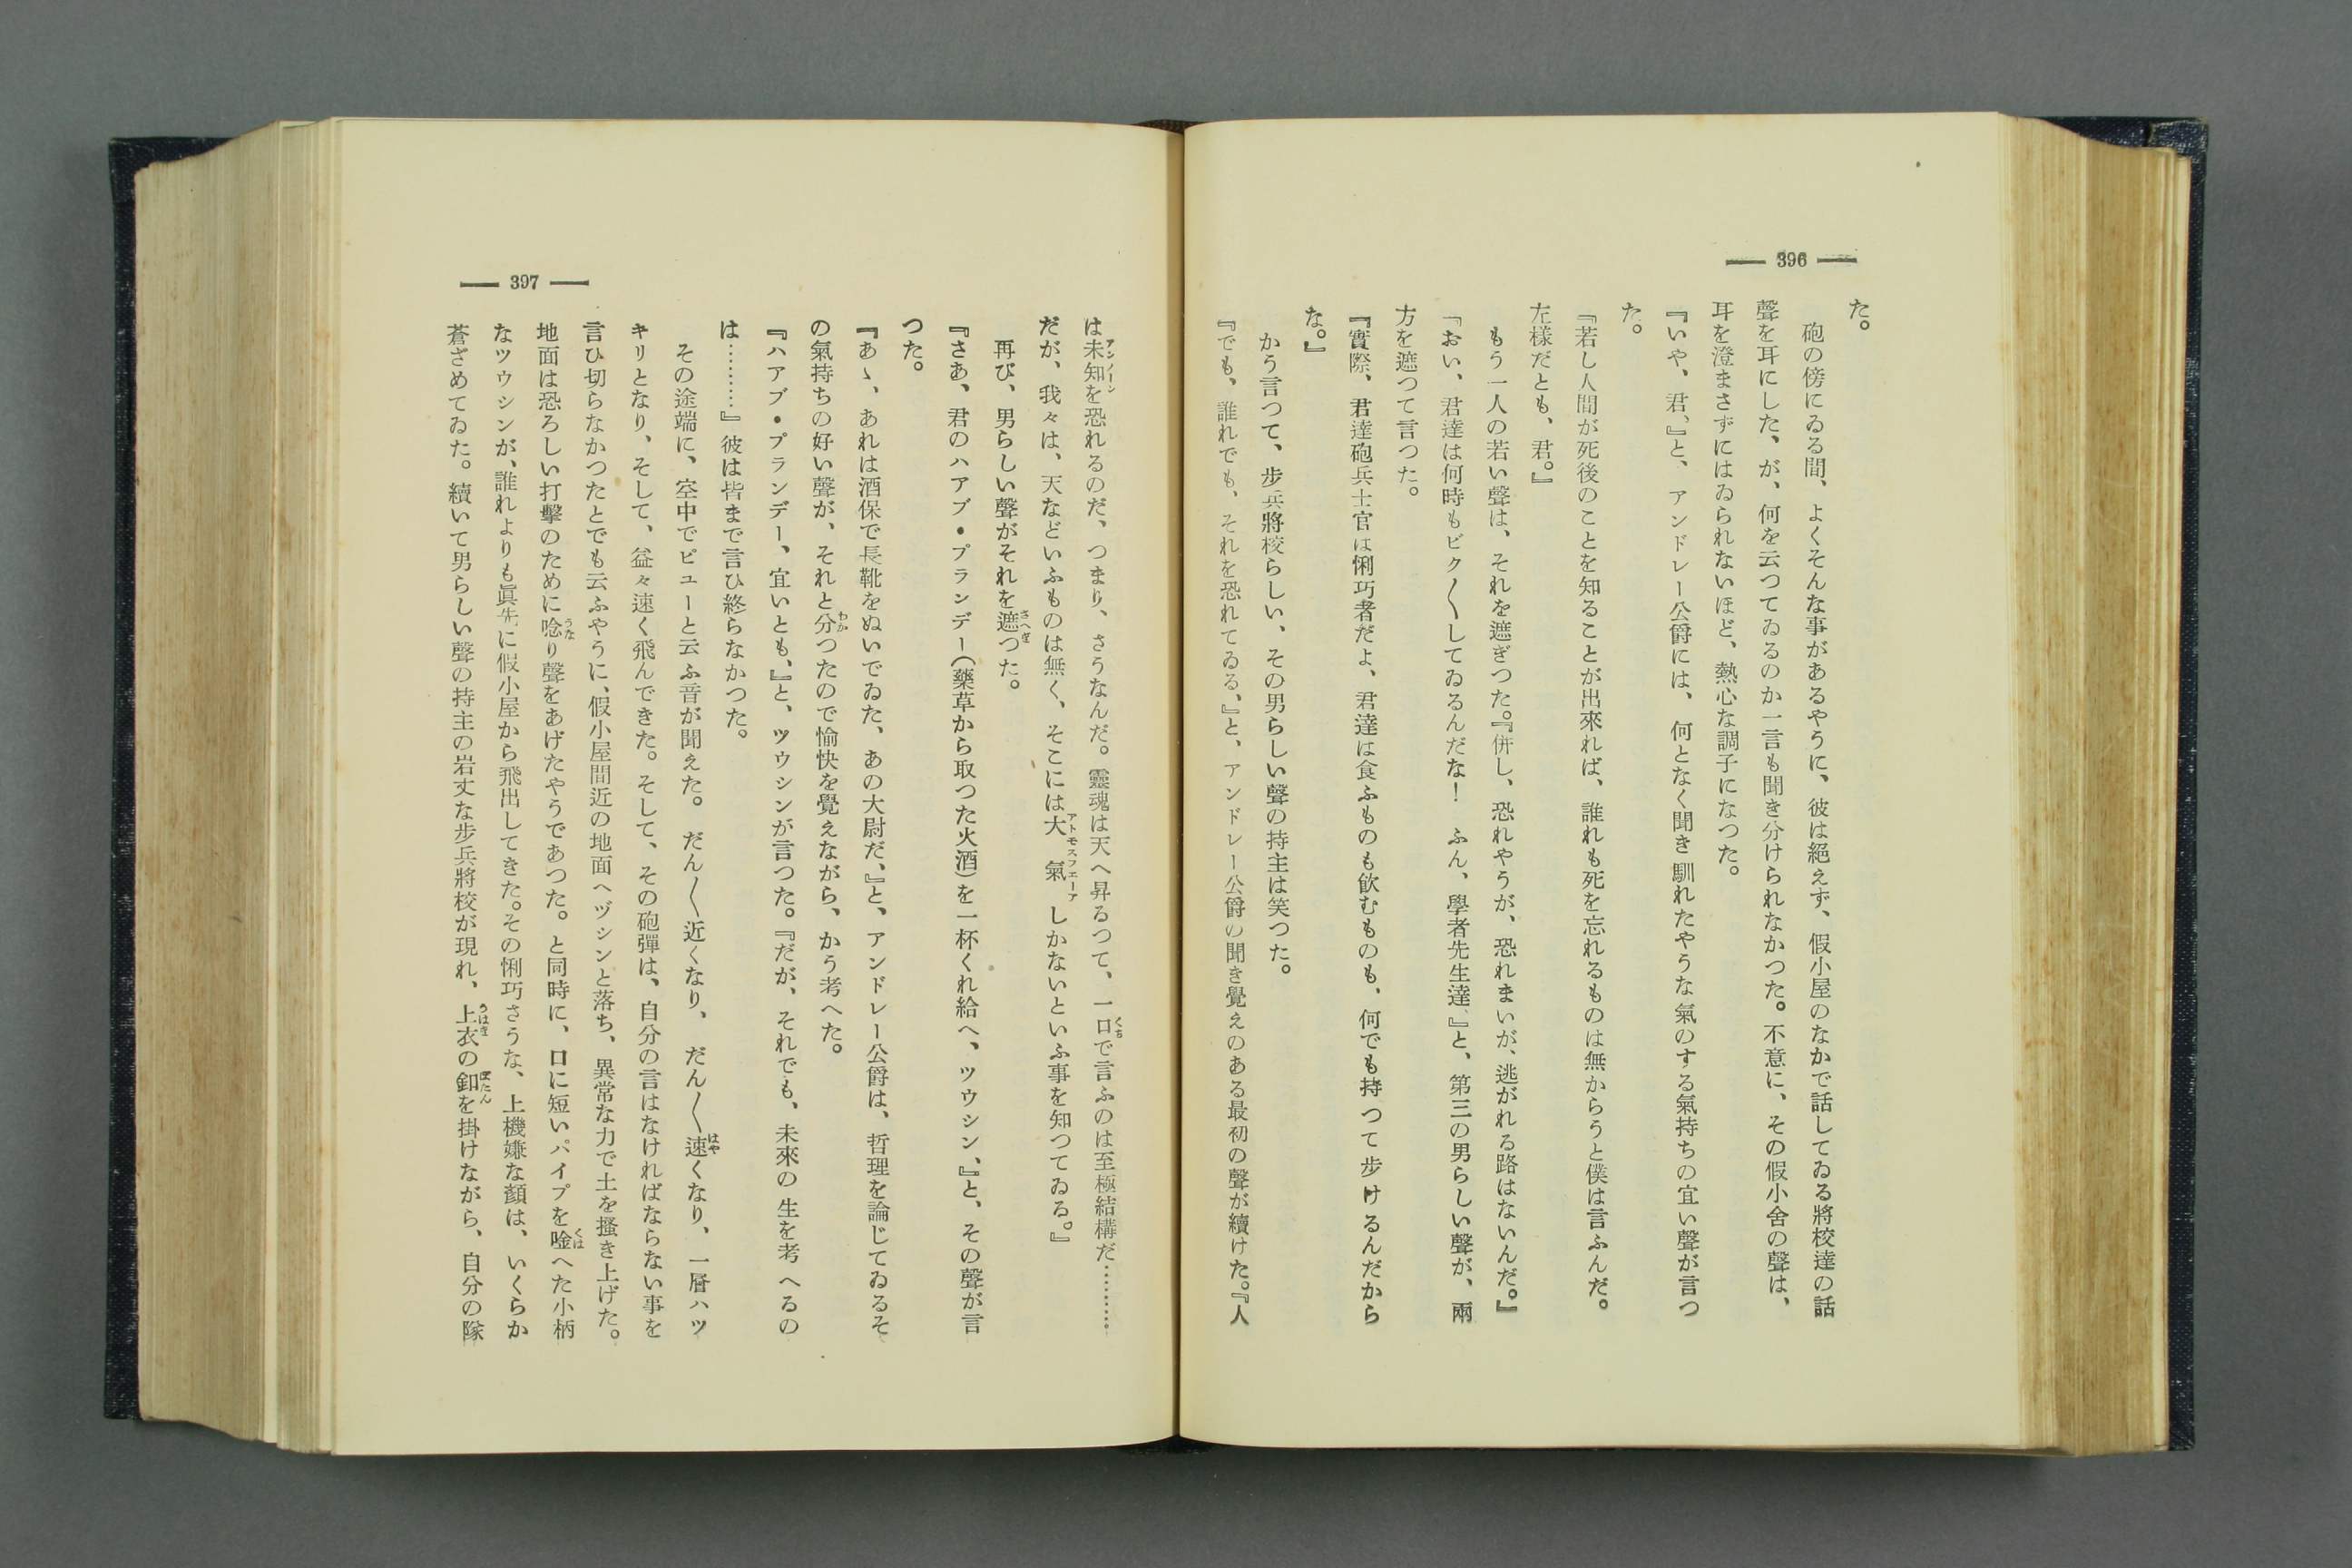 — 396 —
た。
砲の傍にゐる間、よくそんな事があるやうに、彼は絕えず、假小屋のなかで話してゐる將校達の話
聲を耳にした、が、何を云つてゐるのか一言も聞き分けられなかつた。不意に、その假小舍の聲は、
耳を澄まさずにはゐられないほど、熱心な調子になつた。
『いや、君、』と、アンドレー公爵には、何となく聞き馴れたやうな氣のする氣持ちの宜い聲が言つ
た。
『若し人間が死後のことを知ることが出來れば、誰れも死を忘れるものは無からうと僕は言ふんだ。
左樣だとも、君。』
もう一人の若い聲は、それを遮ぎつた。『併し、恐れやうが、恐れまいが、逃がれる路はないんだ。』
「おい、君達は何時もビク〱してゐるんだな！　ふん、學者先生達、』と、第三の男らしい聲が、兩
方を遮つて言つた。
『實際、君達砲兵士官は悧巧者だよ、君達は食ふものも飮むものも、何でも持つて步けるんだから
な。』
かう言つて、步兵將校らしい、その男らしい聲の持主は笑つた。
『でも、誰れでも、それを恐れてゐる、』と、アンドレー公爵の聞き覺えのある最初の聲が續けた。『人
— 397 —
は未知アンノーンを恐れるのだ、つまり、さうなんだ。靈魂は天へ昇るつて、一口くちで言ふのは至極結構だ………
だが、我々は、天などいふものは無く、そこには大氣アトモスフエーアしかないといふ事を知つてゐる。』
再び、男らしい聲がそれを遮さへぎつた。
『さあ、君のハアブ・ブランデー（藥草から取つた火酒）を一杯くれ給へ、ツウシン、』と、その聲が言
つた。
『あゝ、あれは酒保で長靴をぬいでゐた、あの大尉だ、』と、アンドレー公爵は、哲理を論じてゐるそ
の氣持ちの好い聲が、それと分わかつたので愉快を覺えながら、かう考へた。
『ハアブ・ブランデー、宜いとも、』と、ツウシンが言つた。『だが、それでも、未來の生を考へるの
は…………』彼は皆まで言ひ終らなかつた。
その途端に、空中でピューと云ふ音が聞えた。だん〱近くなり、だん〱速はやくなり、一層ハツ
キリとなり、そして、益々速く飛んできた。そして、その砲彈は、自分の言はなければならない事を
言ひ切らなかつたとでも云ふやうに、假小屋間近の地面へヅシンと落ち、異常な力で土を搔き上げた。
地面は恐ろしい打擊のために唸うなり聲をあげたやうであつた。と同時に、口に短いパイプを啣くはへた小柄
なツウシンが、誰れよりも眞先に假小屋から飛出してきた。その悧巧さうな、上機嫌な顏は、いくらか
蒼ざめてゐた。續いて男らしい聲の持主の岩丈な步兵將校が現れ、上衣うはぎの釦ぼたんを掛けながら、自分の隊